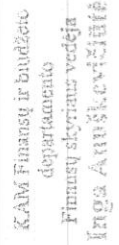 KAM Finansų ir biudžeto
departamento
Finansų skyriaus vedėja
Inga